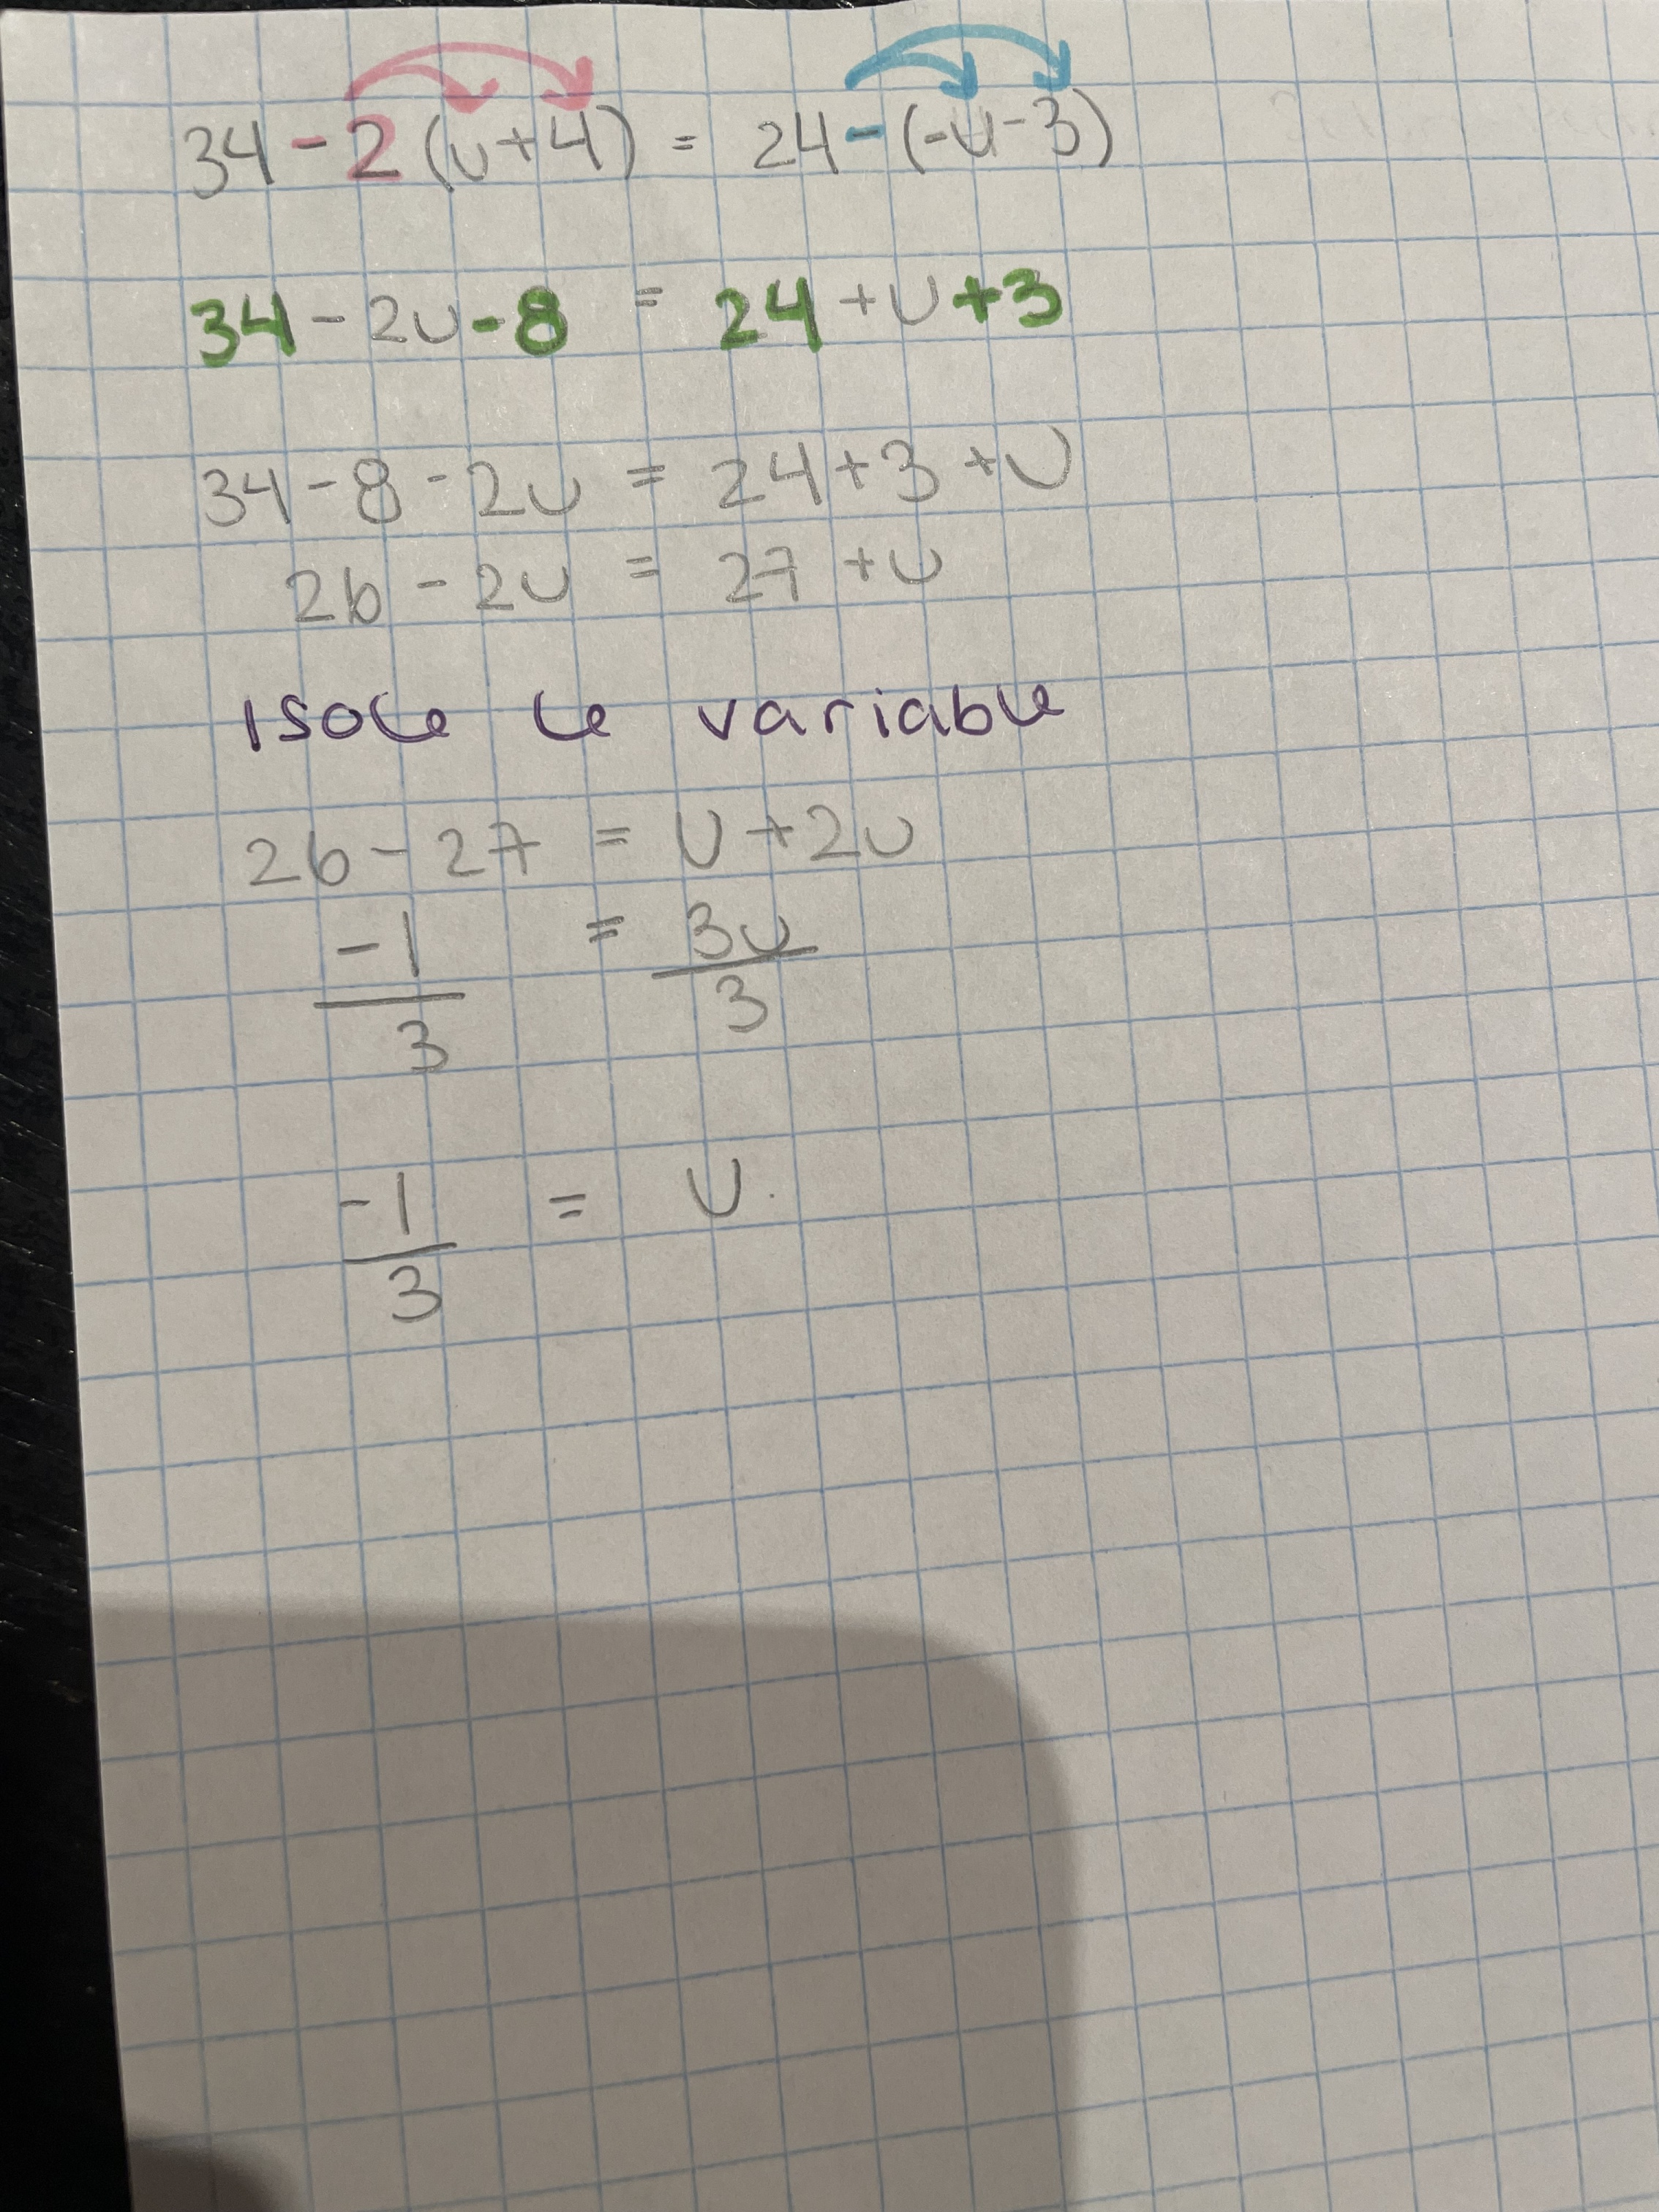 34 - 2 (u + 4) = 24 - (-u - 3)
34 - 2u - 8 = 24 + u + 3
34 - 8 - 2u = 24 + 3 + u
26 - 2u = 27 + u
isole le variable
26 - 27 = u + 2u
-1/3 = 3u/3
-1/3 = u